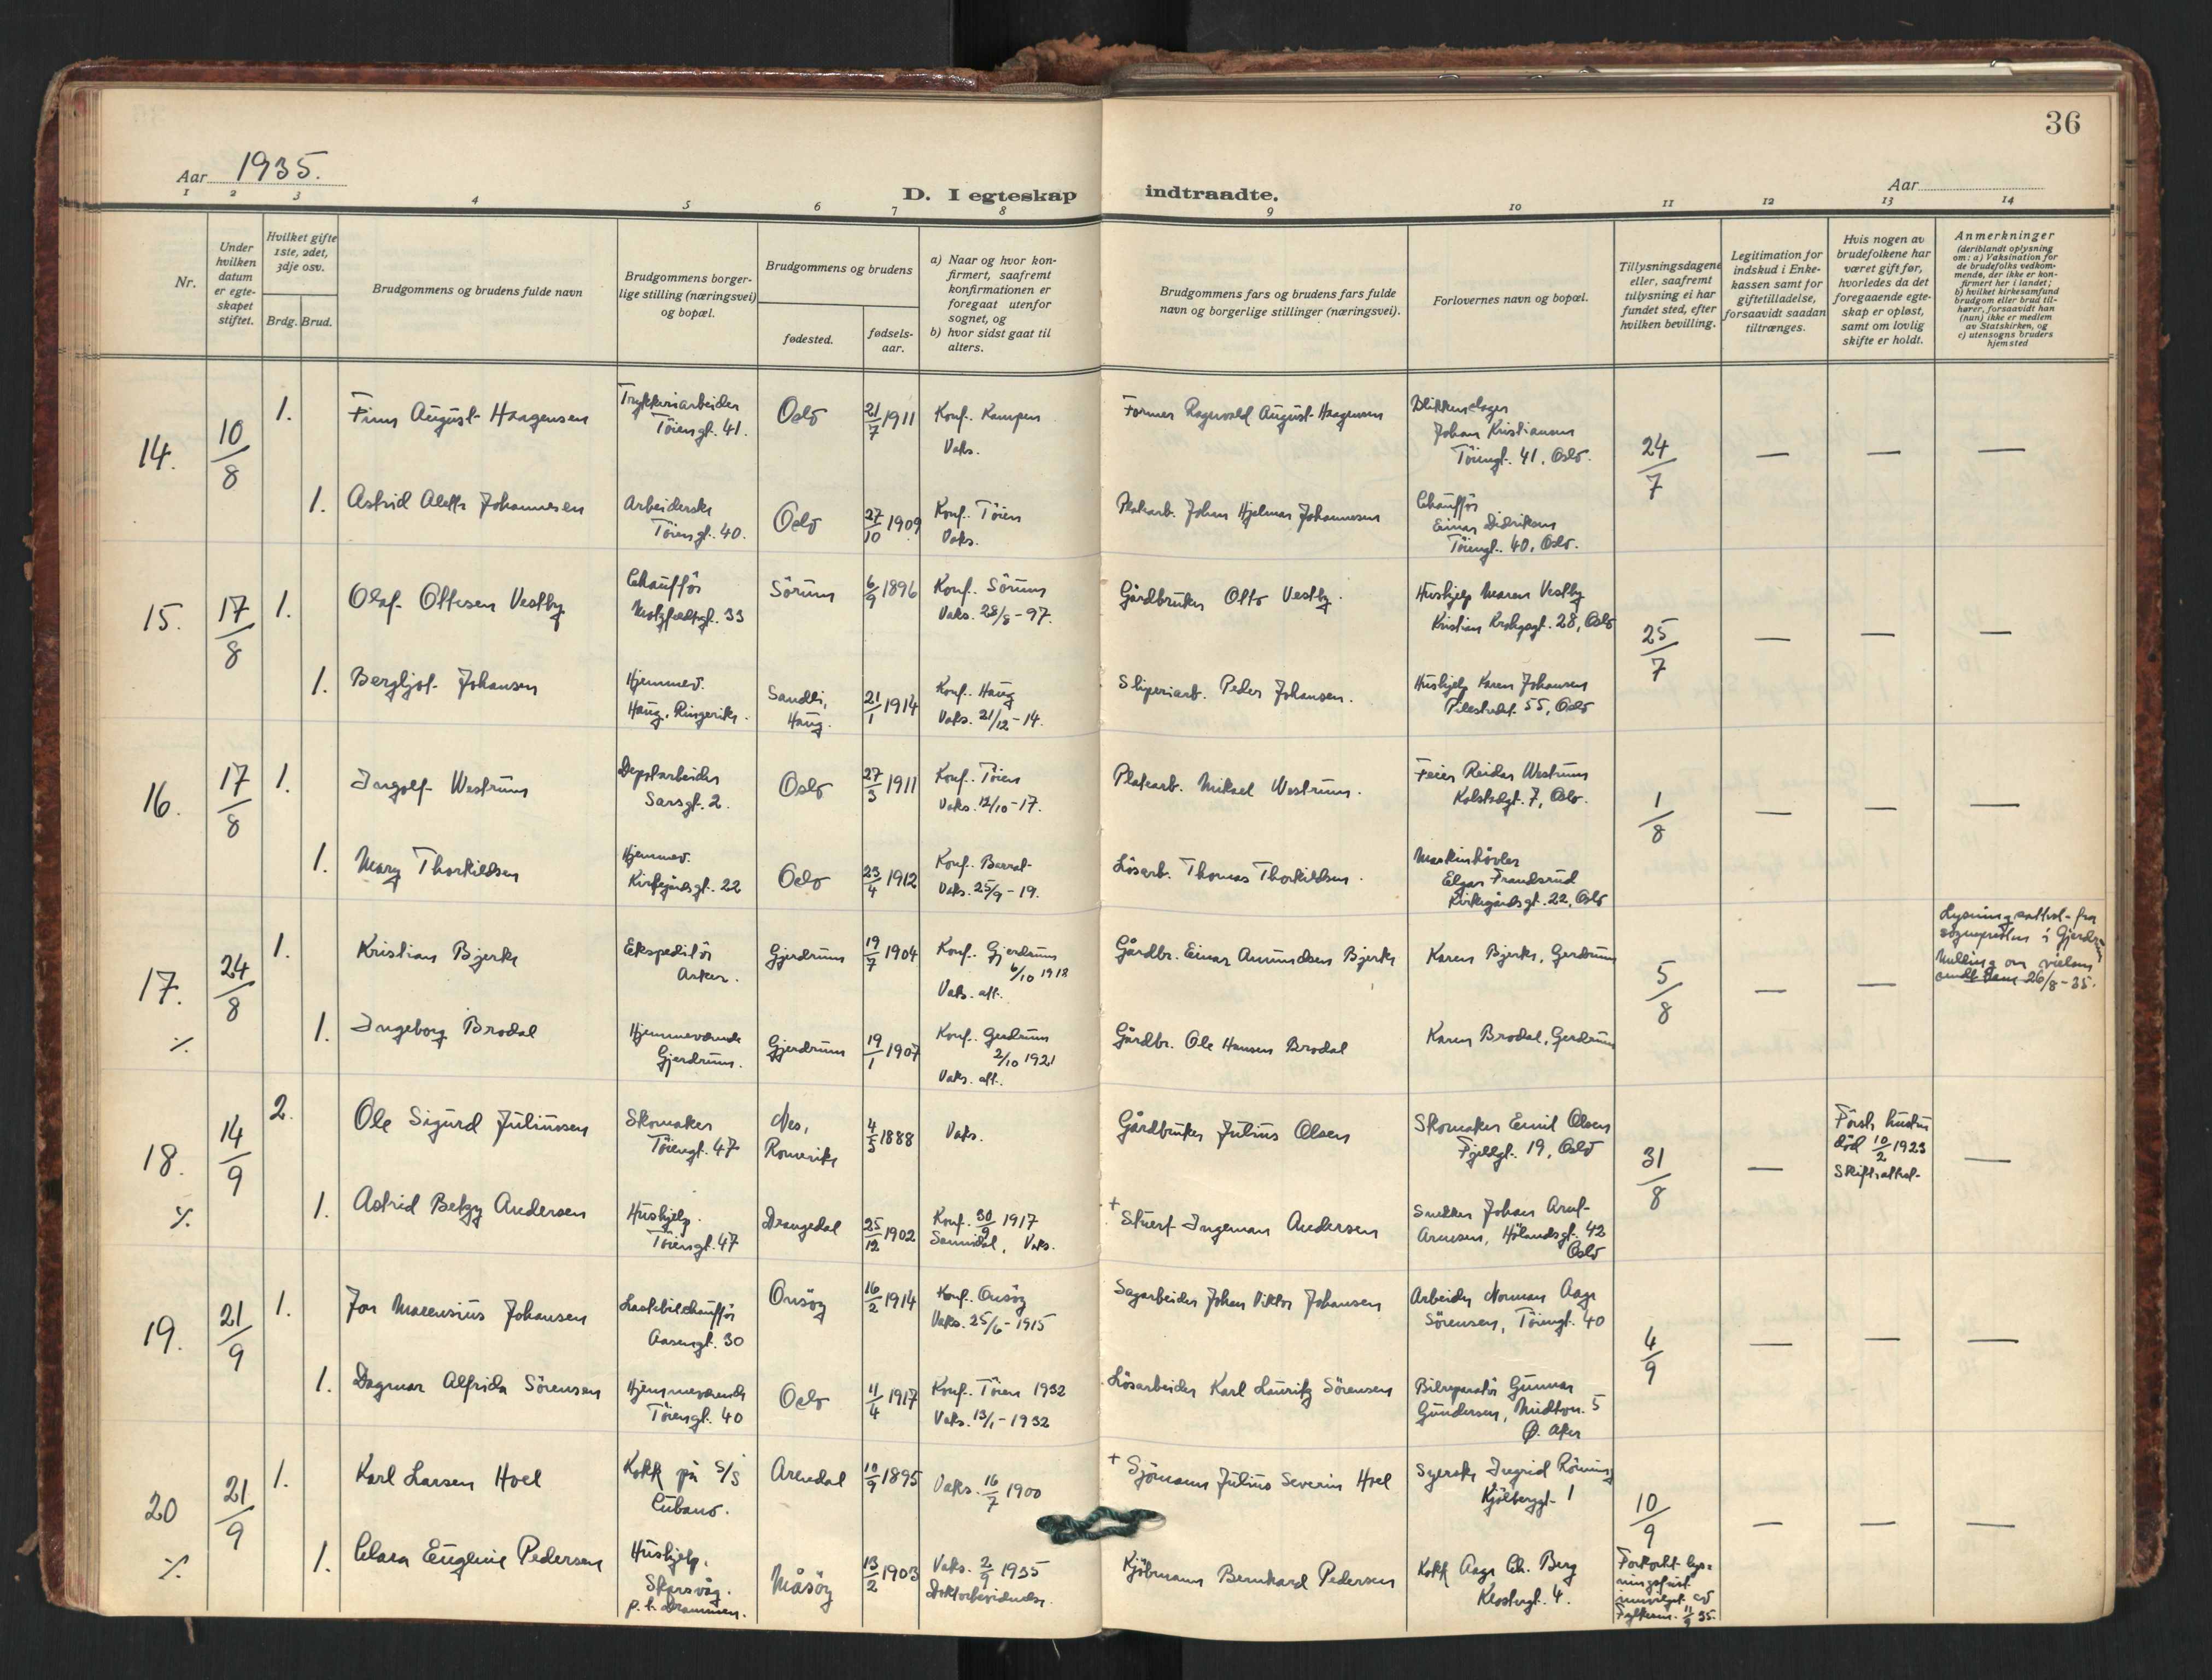 36
Aar 1935.
D. I egteskap indtraadte.
Aar
1 2 3 4 5 6 7 8 9 10 11 12 13 14
Nr.
Under hvilken datum er egteskapet stiftet.
Hvilket gifte 1ste, 2det, 3dje osv.
Brdg. Brud.
Brudgommens og brudens fulde navn
Brudgommens borgerlige stilling (næringsvei) og bopæl.
Brudgommens og brudens
fødested.
fødselsaar.
a) Naar og hvor konfirmert, saafremt konfirmationen er foregaat utenfor sognet, og
b) hvor sidst gaat til alters.
Brudgommens fars og brudens fars fulde navn og borgerlige stillinger (næringsvei).
Forlovernes navn og bopæl.
Tillysningsdagene eller, saafremt tillysning ei har fundet sted, efter hvilken bevilling.
Legitimation for indskud i Enkekassen samt for giftetilladelse, forsaavidt saadan tiltrænges.
Hvis nogen av brudefolkene har været gift før, hvorledes da det foregaaende egteskap er opløst, samt om lovlig skifte er holdt.
Anmerkninger (deriblandt oplysning om: a) Vaksination for de brudefolks vedkommende, der ikke er konfirmert her i landet; b) hvilket kirkesamfund brudgom eller brud tilhører, forsaavidt han (hun) ikke er medlem av Statskirken, og c) utensogns bruders hjemsted
14. 10/8 1. Finn August Haagensen Trykkeriarbeider Töiengt. 41. Oslo 21/7 1911 Konf. Kampen Vaks. Former Ragnvald August Haagensen Blikkenslager Johan Kristiansen Töiengt. 41, Oslo. 24/7 — — —
1. Astrid Aletta Johannesen Arbeiderske Töiengt. 40. Oslo 27/10 1909 Konf. Töien Vaks. Platearb. Johan Hjelmar Johannesen Chaufför Einar Didriksen Töiengt. 40, Oslo.
15. 17/8 1. Olaf Ottesen Vestby Chaufför Motzfeldtsgt. 33 Sörum 6/9 1896 Konf. Sörum Vaks. 28/8-97. Gårdbruker Otto Vestby. Hushjelp Maren Vestby Kristian Krohgsgt. 28, Oslo 25/7 — — —
1. Bergljot Johansen Hjemmev. Haug, Ringerike. Sandli, Haug. 21/1 1914 Konf. Haug Vaks. 21/12-14. Sliperiarb. Peder Johansen. Hushjelp Karen Johansen Pilestredet 55, Oslo
16. 17/8 1. Ingolf Westrum Depotarbeider Sarsgt. 2. Oslo 27/3 1911 Konf. Töien Vaks. 12/10-17. Platearb. Mikael Westrum. Feier Reidar Westrum Kolstadgt. 7, Oslo. 1/8 — — —
1. Mary Thorkildsen Hjemmev. Kirkegårdsgt. 22 Oslo 23/4 1912 Konf. Barrat Vaks. 25/9-19. Lösarb. Thomas Thorkildsen. Maskinhövler Elgar Frandsrud Kirkegårdsgt. 22, Oslo
17. 24/8 1. Kristian Bjerke Ekspeditör Asker. Gjerdrum 19/7 1904 Konf. Gjerdrum 6/10 1918 Vaks. att. Gårdbr. Einar Amundsen Bjerke Karen Bjerke, Gerdrum 5/8 — — Lysningsattest fra sognepresten i Gjerdrum Melding om vielsen sendt ham 26/8-35.
1. Ingeborg Brodal Hjemmeværende Gjerdrum. Gjerdrum 19/1 1907 Konf. Gerdrum 2/10 1921 Vaks. att. Gårdbr. Ole Hansen Brodal Karen Brodal, Gerdrum
18. 14/9 2. Ole Sigurd Juliussen Skomaker Töiengt. 47 Nes, Romerike 4/5 1888 Vaks. Gårdbruker Julius Olsen Skomaker Emil Olsen Fjellgt. 19, Oslo 31/8 — Förste hustru död 10/2 1923 Skifteattest —
1. Astrid Betzy Andersen Hushjelp. Töiengt. 47 Drangedal 25/12 1902 Konf. 30/9 1917 Sannidal, Vaks. + Stuert Ingeman Andersen Snekker Johan Arnt Arnesen, Hölandsgt. 42 Oslo
19. 21/9 1. Jon Macensius Johansen Lastebilchaufför Aasengt. 30 Onsöy 16/2 1914 Konf. Onsöy Vaks. 25/6-1915 Sagarbeider Johan Viktor Johansen Arbeider Norman Aage Sörensen, Töiengt. 40 4/9 — — —
1. Dagmar Alfrida Sörensen Hjemmeværende Töiengt. 40 Oslo 11/4 1917 Konf. Töien 1932 Vaks. 13/1-1932 Lösarbeider Karl Lauritz Sörensen Bilreparatör Gunnar Gundersen, Midtvn. 5 Ø. Aker
20 21/9 1. Karl Larsen Hoel Kokk på S/S Cubano. Arendal 10/9 1895 Vaks. 16/7 1900 + Sjömann Julius Severin Hoel Syerske Ingrid Röning Kjölberggt. 1 10/9 — — —
1. Clara Eugenie Pedersen Hushjelp. Skarsvåg. p.t. Drammen. Måsöy 13/2 1903 Vaks. 2/9 1935 Doktorbevidnelse. Kjöbmann Bernhard Pedersen Kokk Aage Ch. Berg Klostergt. 4. Forkortet lysningsfrist innvilget av Fylkesm. 11/9 35.